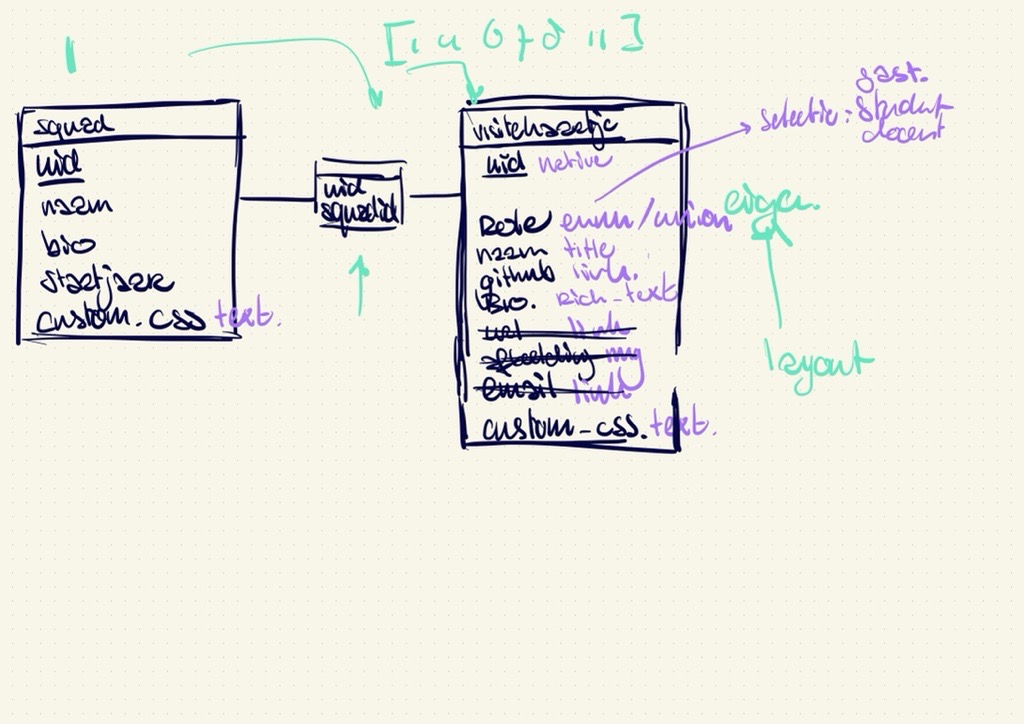 squad
uid
naam
bio
startjaar
custom.css text.
uid
squadid
visitekaartje
uid native
Role enum/union
naam title
github link.
Bio. Rich-text
url link
afbeelding img
email link
custom-css. text.
selectie:
gast.
student
docent
eigen.
layout